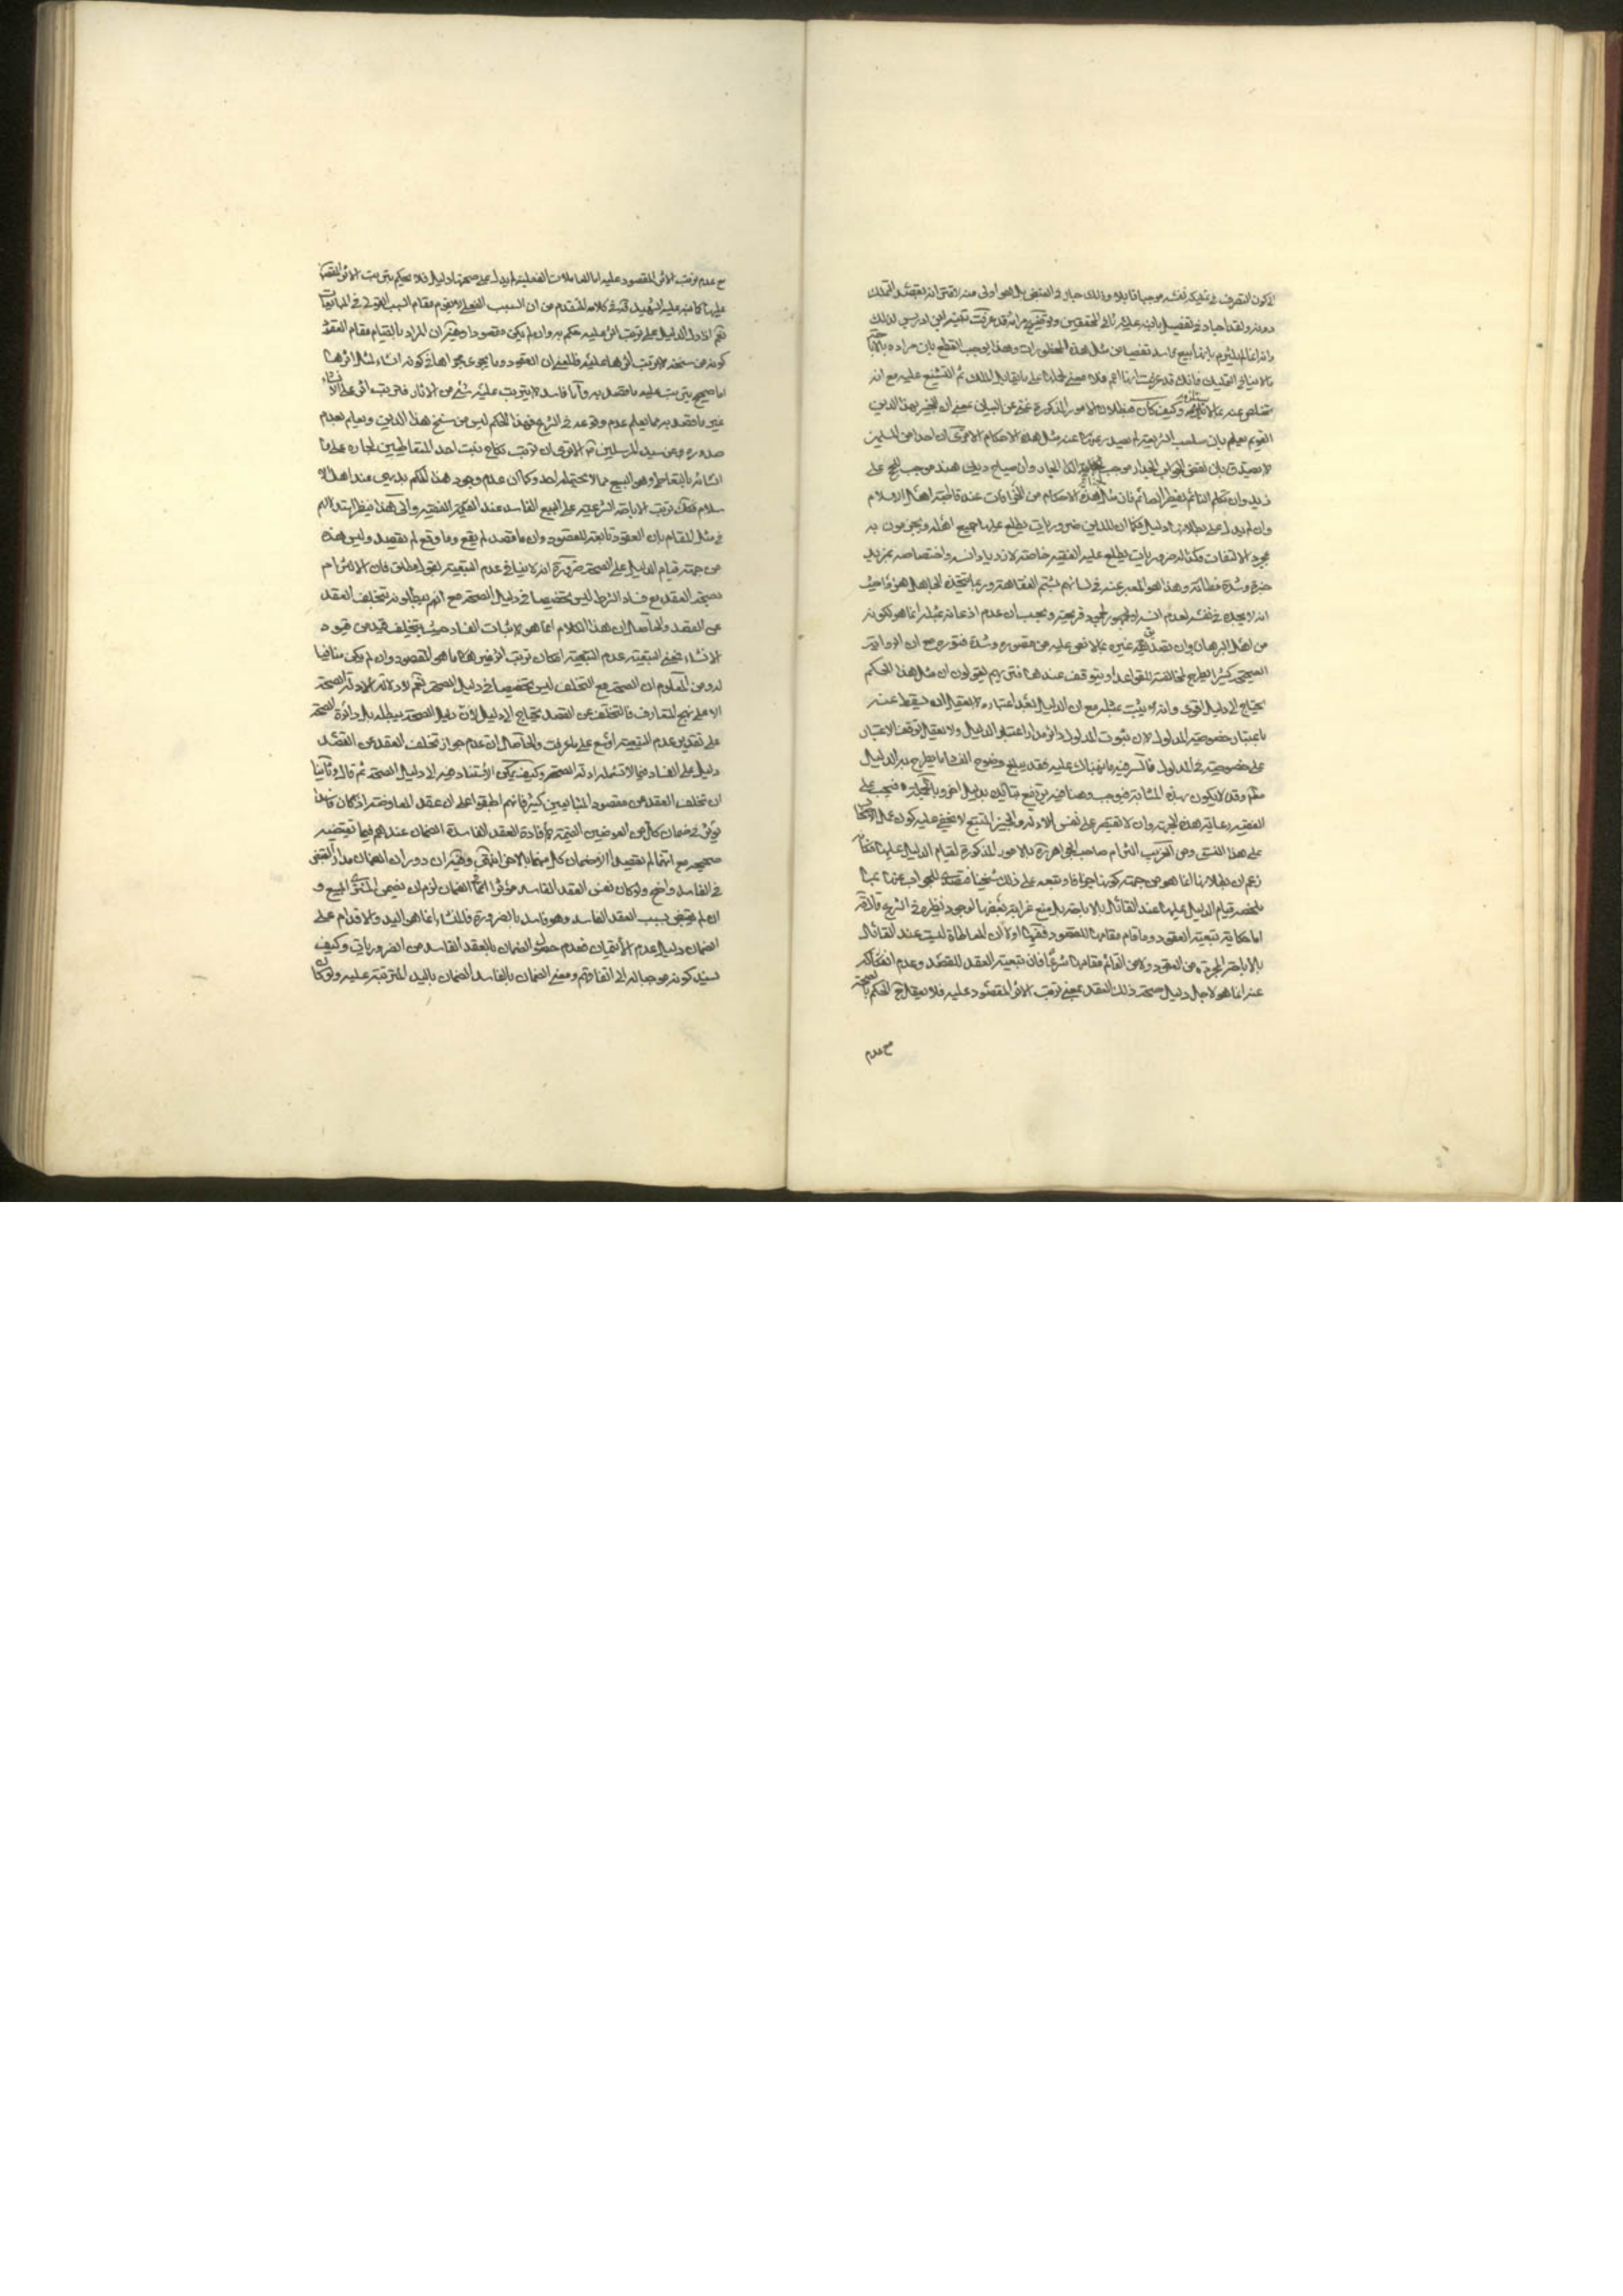 لا يكون التصرف في تمليكه نفسه موجبا قابلا وذلك جار في القبض بل هو اولى منه لاقترانه بقصد التملك
دونه ولقد اجاد في تفصيل ما نبه عليه ثاني المحققين وتوضيح مرامه قد عرفت تنبيه ابن ادريس لذلك
وانه انما لم يلتزم بانها بيع فاسد تفصيا عن مثل هذه المحظورات وهذا يوجب القطع بان مراده بالاباحة
ما لا ينافي التمليك فانك قد عرفت انها اعم فلا معنى لحملها على ما يقابل الملك ثم التشنيع عليه مع انه
متفاص عنه بما لا وكيف كان فبطلان الامور المذكورة غني عن البيان بمعنى ان الخبير بهذا الدين
القويم يعلم بان صاحب الشريعة لم يصدر عنه مثل هذه الاحكام الا ترى ان احدا من المسلمين
لا يصدق بان نقض الجدار موجب لمالك الجار وان صياح ديك هند موجب للحج على
زيد وان تكلم النائم يفطر الصائم فان مثل هذه الاحكام من الخرافات عند قاطبة اهل الاسلام
وان لم يدل على بطلانها دليل فكما ان للدين ضروريات يطلع عليها جميع اهله ويجزمون به
بمجرد الالتفات فكذا له ضروريات يطلع عليه الفقيه خاصة لازدياد انسه واختصاصه بمزيد
خبرة وشدة فطانة وهذا هو المعبر عنه في لسانهم بشم الفقاهة وربما يتخيل الجاهل هو من حيث
انه لا يجده في نفسه لعدم انسه او لجمود قريحته ويحسب ان عدم اذعانه بمثله انما هو لكونه
من اهل البرهان وان تصديق غيره بما لا نص عليه من قصوره وشدة فتوره مع ان الرواية
الصحيحة كثيرا تطرح لمخالفته القواعد او يتوقف عندها فتريهم يقولون ان مثل هذا الحكم
يحتاج الى دليل اقوى وانه لا يثبت بمثله مع ان الدليل بعد اعتباره لا يعقل ان يسقط عنه
باعتبار خصوصية المدلول لان ثبوت المدلول دائر مدار اعتبار الدليل ولا يعقل توقف الاعتبار
على خصوصية في المدلول فالسر فيه ما نبهناك عليه فقد يبلغ وضوح الفساد ما يطرح به الدليل
معه وقد لا يكون بهذه المثابة فيوجب وهنا فيه يرتفع بتاكيد بدليل اخر وبالجملة فيجب على
الفقيه رعاية هذه الجهة وان لا يقتصر على نفس الادلة والخبير المتتبع لا يخفى عليه كون عمل الاصحاب
على هذا النسق ومن الغريب التزام صاحب الجواهر ره بالامور المذكورة لقيام الدليل عليها
زعم ان بطلانها انما هو من جهة كونها وتبعه على ذلك شيخنا فتصدى للجواب عنها بما
ملخصه قيام الدليل عليها عند القائل بالاباحة بل منع غرابة بعضها لوجود نظيره في الشرع قال ره
اما حكاية تبعية العقود وما قام مقامها للقصود ففيها اولا ان المعاطاة ليست عند القائل
بالاباحة المجردة من العقود ولا من القائم مقامها شرعا فان تبعية العقد للقصد وعدم انفكاكه
عنه انما هو لاجل دليل صحة ذلك العقد بمعنى ترتب الاثر المقصود عليه فلا يعقل ح الحكم بالصحة
مع عدم
مع عدم ترتب الاثر المقصود عليه اما المعاملات الفعلية لم يدل على صحتها دليل فلا يحكم بترتب الاثر المقصود
عليها كما نبه عليه الشهيد قده في كلامه المتقدم من ان السبب الفعلي لا يقوم مقام السبب القولي في المبايعات
نعم اذا دل الدليل على ترتب اثر عليه حكم به وان لم يكن مقصودا وفيه ان المراد بالقيام مقام العقد
كونه من سنخه لا ترتب اثرها عليه فالمعنى ان العقود وما يجري مجراها في كونه انشاء لمثل اثرها
اما صحيح يترتب عليه ما قصد به واما فاسد لا يترتب عليه شئ من الاثار فترتب اثر على الانشاء
غير ما قصد به مما يعلم عدم وقوعه في الشرع فهذا الحكم ليس من سنخ هذا الدين ويعلم بعدم
صدوره عن سيد المرسلين ص الا ترى ان ترتب نكاح بنت احد المتعاطيين لجاره على ما
انشائه بالتعاطي وهو البيع مما لا يحتمله احد وكما ان عدم وجود هذا الحكم بديهي عند اهل الا
سلام فكك ترتب الاباحة الشرعية على البيع الفاسد عند الفقيه والى هذا ينظر استدلالهم
في مثل المقام بان العقود تابعة للقصود وان ما قصد لم يقع وما وقع لم يقصد وليس هذا
من جهة قيام الدليل على الصحة ضرورة انه لا ينافي عدم التبعية بقول مطلق فان الالتزام
بصحة العقد مع فساد الشرط ليس تخصيصا في دليل الصحة مع انهم يبطلونه بتخلف العقد
عن القصد والحاصل ان هذا الكلام انما هو لاثبات الفساد حيث يتخلف قيد من قيود
الانشاء فمعنى التبعية عدم التبعية امكان ترتب اثر غير ما هو المقصود وان لم يكن منافيا
له ومن المعلوم ان الصحة مع التخلف ليس تخصيصا في دليل الصحة نعم لا دلالة لادلة الصحة
الا على نهج المتعارف فالتخلف عن القصد يحتاج الى دليل لان دليل الصحة يبطله بل دائرة الصحة
على تقدير عدم التبعية اوسع على ما عرفت والحاصل ان عدم جواز تخلف العقد عن القصد
دليل على الفساد فيما لا تشمله ادلة الصحة وكيف يمكن الاستناد فيه الى دليل الصحة ثم قال وثانيا
ان تخلف العقد عن مقصود المتبايعين كثير فانهم اطبقوا على ان عقد المعاوضة اذا كان فاسدا
يؤثر في ضمان كل من العوضين القيمة لافادة العقد الفاسد الضمان عندهم فيما يقتضيه
صحيحه مع انهما لم يقصدا الا ضمان كل منهما بالاخر انتهى وفيه ان دوران الضمان مدار القبض
في الفاسد واضح ولو كان نفس العقد الفاسد مؤثرا في الضمان لزم ان يضمن المشتري المبيع و
ان لم يقبض بسبب العقد الفاسد وهو فاسد بالضرورة فالمنشاء انما هو اليد والاقدام على
الضمان دليل عدم الائتمان فعدم حصول الضمان بالعقد الفاسد من الضروريات وكيف
يسند كونه موجبا له الى اتفاقهم ومعنى الضمان بالفاسد الضمان باليد المترتبة عليه ولو كان